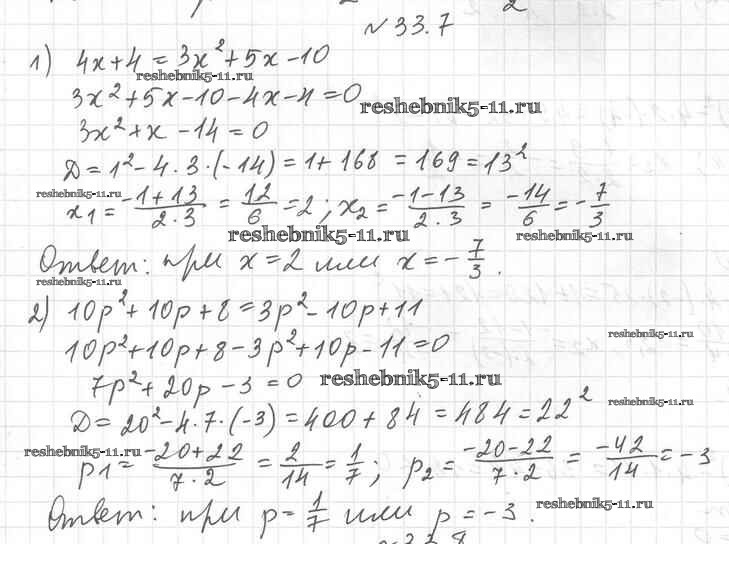 № 33.7
1) 4x + 4 = 3x² + 5x - 10
reshebnik5-11.ru
3x² + 5x - 10 - 4x - 4 = 0
reshebnik5-11.ru
3x² + x - 14 = 0
D = 1² - 4 · 3 · (-14) = 1 + 168 = 169 = 13²
reshebnik5-11.ru
x₁ = (-1 + 13)/(2 · 3) = 12/6 = 2; x₂ = (-1 - 13)/(2 · 3) = -14/6 = -7/3
reshebnik5-11.ru reshebnik5-11.ru
Ответ: при x = 2 или x = -7/3.
reshebnik5-11.ru
2) 10p² + 10p + 8 = 3p² - 10p + 11
reshebnik5-11.ru
10p² + 10p + 8 - 3p² + 10p - 11 = 0
7p² + 20p - 3 = 0
reshebnik5-11.ru
reshebnik5-11.ru
D = 20² - 4 · 7 · (-3) = 400 + 84 = 484 = 22²
reshebnik5-11.ru
p₁ = (-20 + 22)/(7 · 2) = 2/14 = 1/7; p₂ = (-20 - 22)/(7 · 2) = -42/14 = -3
reshebnik5-11.ru
Ответ: при p = 1/7 или p = -3.